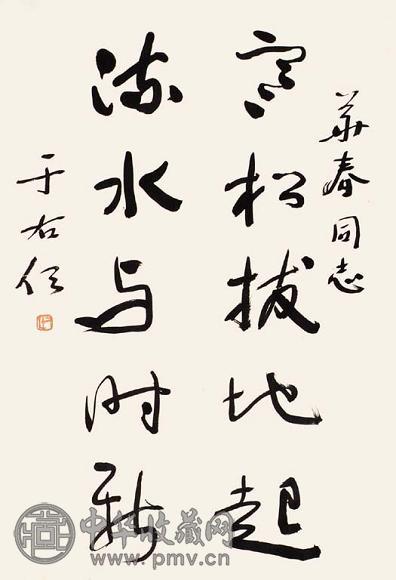 华春同志
高松拔地起
流水与时新
于右任
中华收藏网
www.pmv.cn